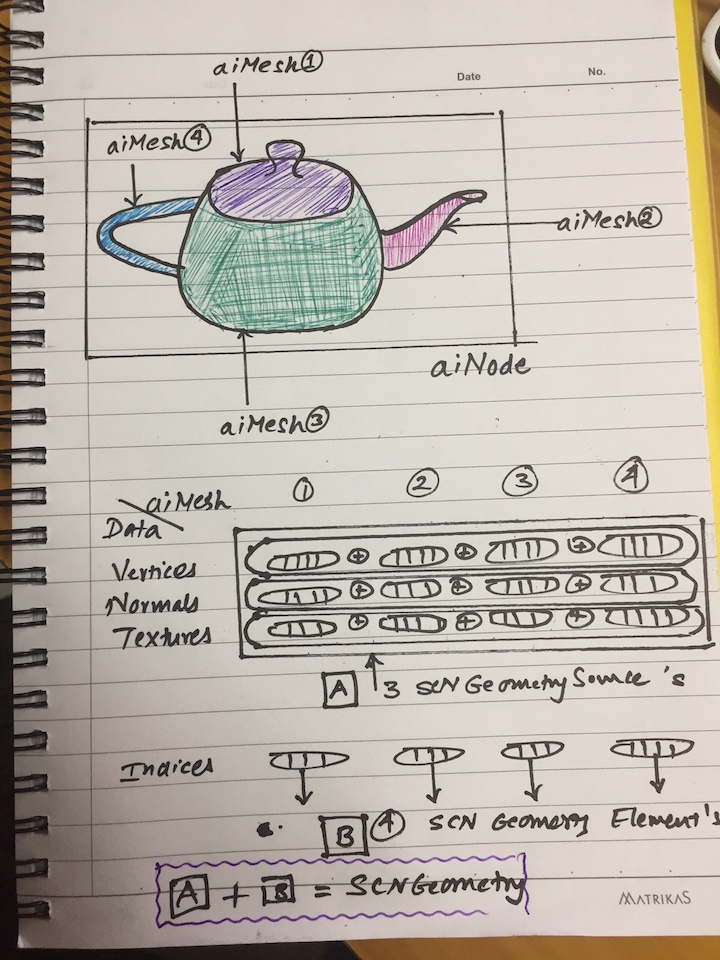 aiMesh①
Date No.
aiMesh④
aiMesh②
aiNode
aiMesh③
aiMesh ① ② ③ ④
Data
Vertices
Normals
Textures
A 3 SCN Geometry Source's
Indices
B ④ SCN Geometry Element's
A + B = SCNGeometry
MATRIKAS